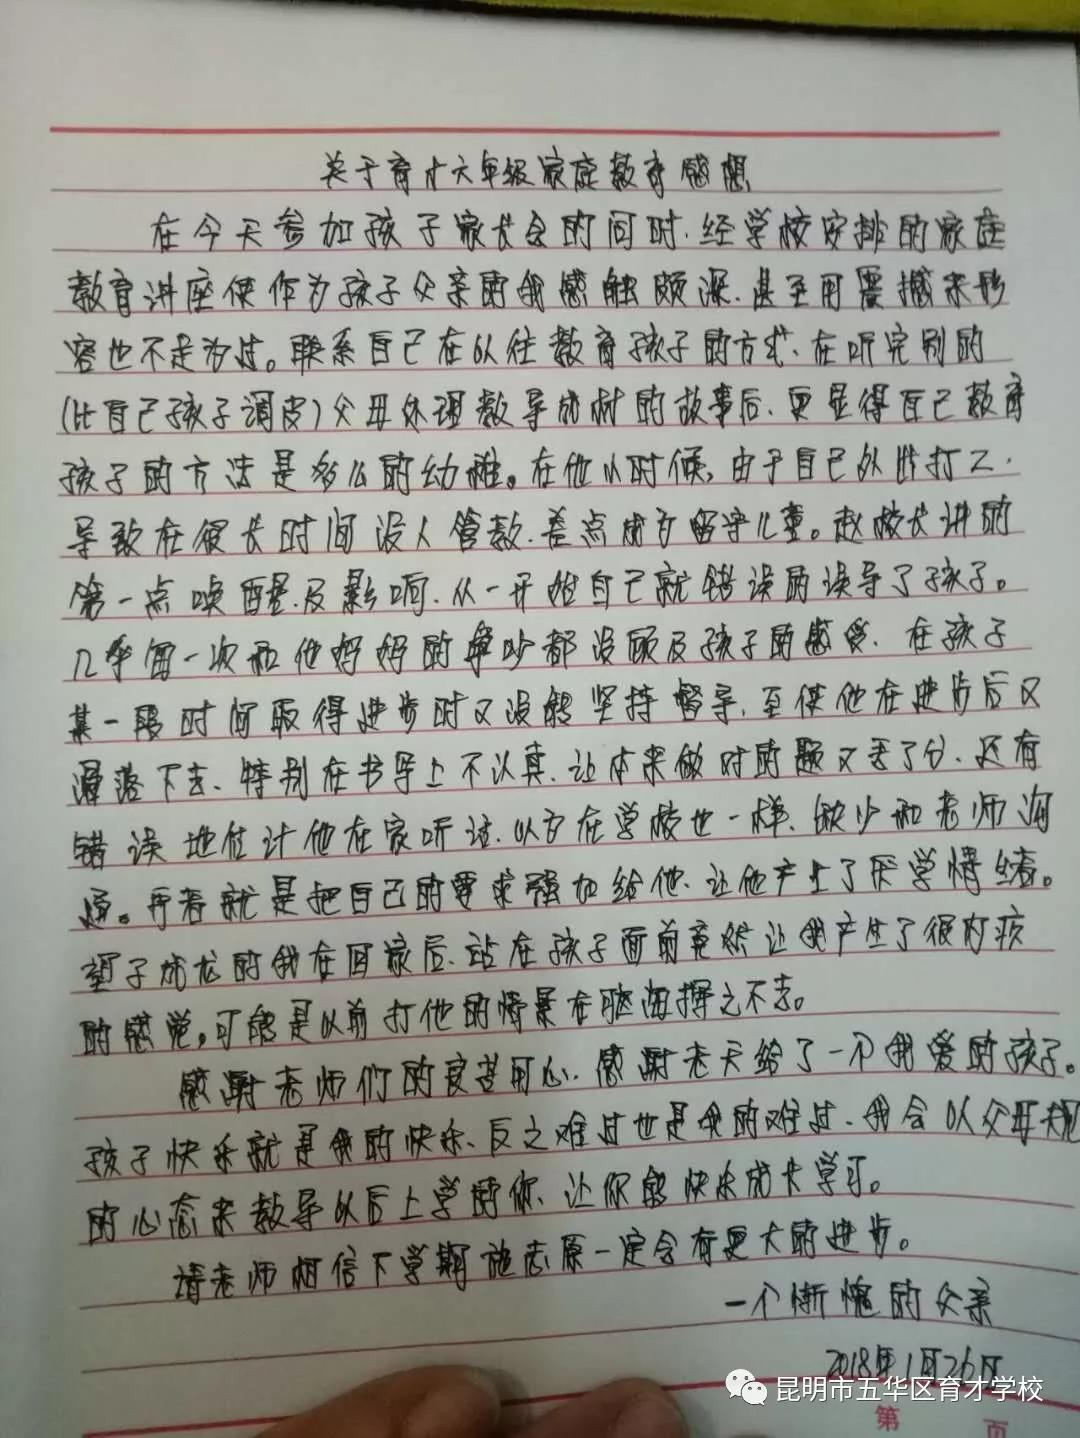 关于育才六年级家庭教育感想
在今天参加孩子家长会的同时.经学校安排的家庭
教育讲座使作为孩子父亲的我感触颇深.甚至用震撼来形
容也不足为过。联系自己在以往教育孩子的方式、在听完别的
(比自己孩子调皮)父母休理教导成材的故事后、更显得自己教育
孩子的方法是多么的幼稚。在他小时候,由于自己外出打工.
导致在很长时间没人管教.差点成为留守儿童。赵校长讲的
第一点唤醒及影响.从一开始自己就错误的误导了孩子。
几乎每一次和他妈妈的争吵都没顾及孩子的感受.在孩子
某一段时间取得进步时又没能坚持督导.至使他在进步后又
滑落下去.特别在书写上不认真.让本来做对的题又丢了分.还有
错误地估计他在家听话.以为在学校也一样、缺少和老师沟
通。再者就是把自己的要求强加给他.让他产生了厌学情绪。
望子成龙的我在回家后.站在孩子面前竟然让我产生了很内疚
的感觉。可能是以前打他的情景在脑海挥之不去。
感谢老师们的良苦用心.感谢老天给了一个我爱的孩子。
孩子快乐就是我的快乐、反之难过也是我的难过.我会以父母
的心态来教导以后上学的你、让你能快乐成长学习。
请老师相信下学期施志原一定会有更大的进步。
一个惭愧的父亲
2018年1月26日
昆明市五华区育才学校
第 页